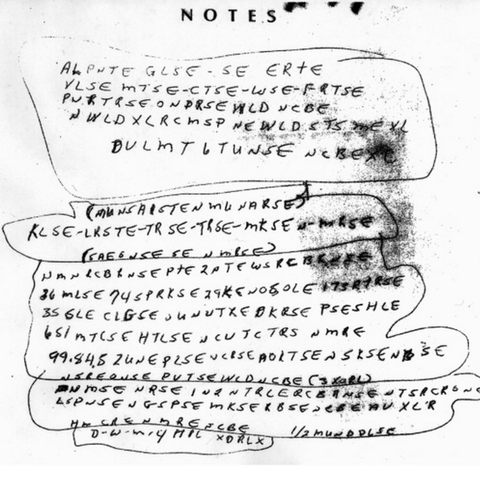 NOTES
ALPNTE GLSE-SE ERTE
VLSE MTSE-CTSE-WSE-FRTSE
PNRTRSE ONDRSE WLD NCBE
NWLD XLRCMSP NEWLD STS MEXL
DULMT 6 TUNSE NCBE XC
(MUNSARSTEN MUNARSE)
KLSE-LRSTE-TRSE-TRSE-MKSEN-MRSE
(SAEGNSE SE NMRSE)
NMNRCBRNSE PTE 2PTEWSRCBRNSE
36 MLSE 74 SPRKSE 29KENOSOLE 173RTRSE
35 GLE CLGSE UNUTXE DKRSE PSESHLE
651 MTCSE HTLSE NCUTCTRS NMRE
99.84.5 2UNEPLSE NCRSE AOLTSE NSKSE NBSE
NSREONSE PVTSE WLD NCBE (3XORL)
NRSE IN2NTRLERCBRNSE NTSRCRONE
LSPNSE NGSPSE MKSERBSE NCBE AUXLR
HM CRE NMRE NCBE 1/2 MUNDDLSE
D-W-M-4 MIL XDRLX